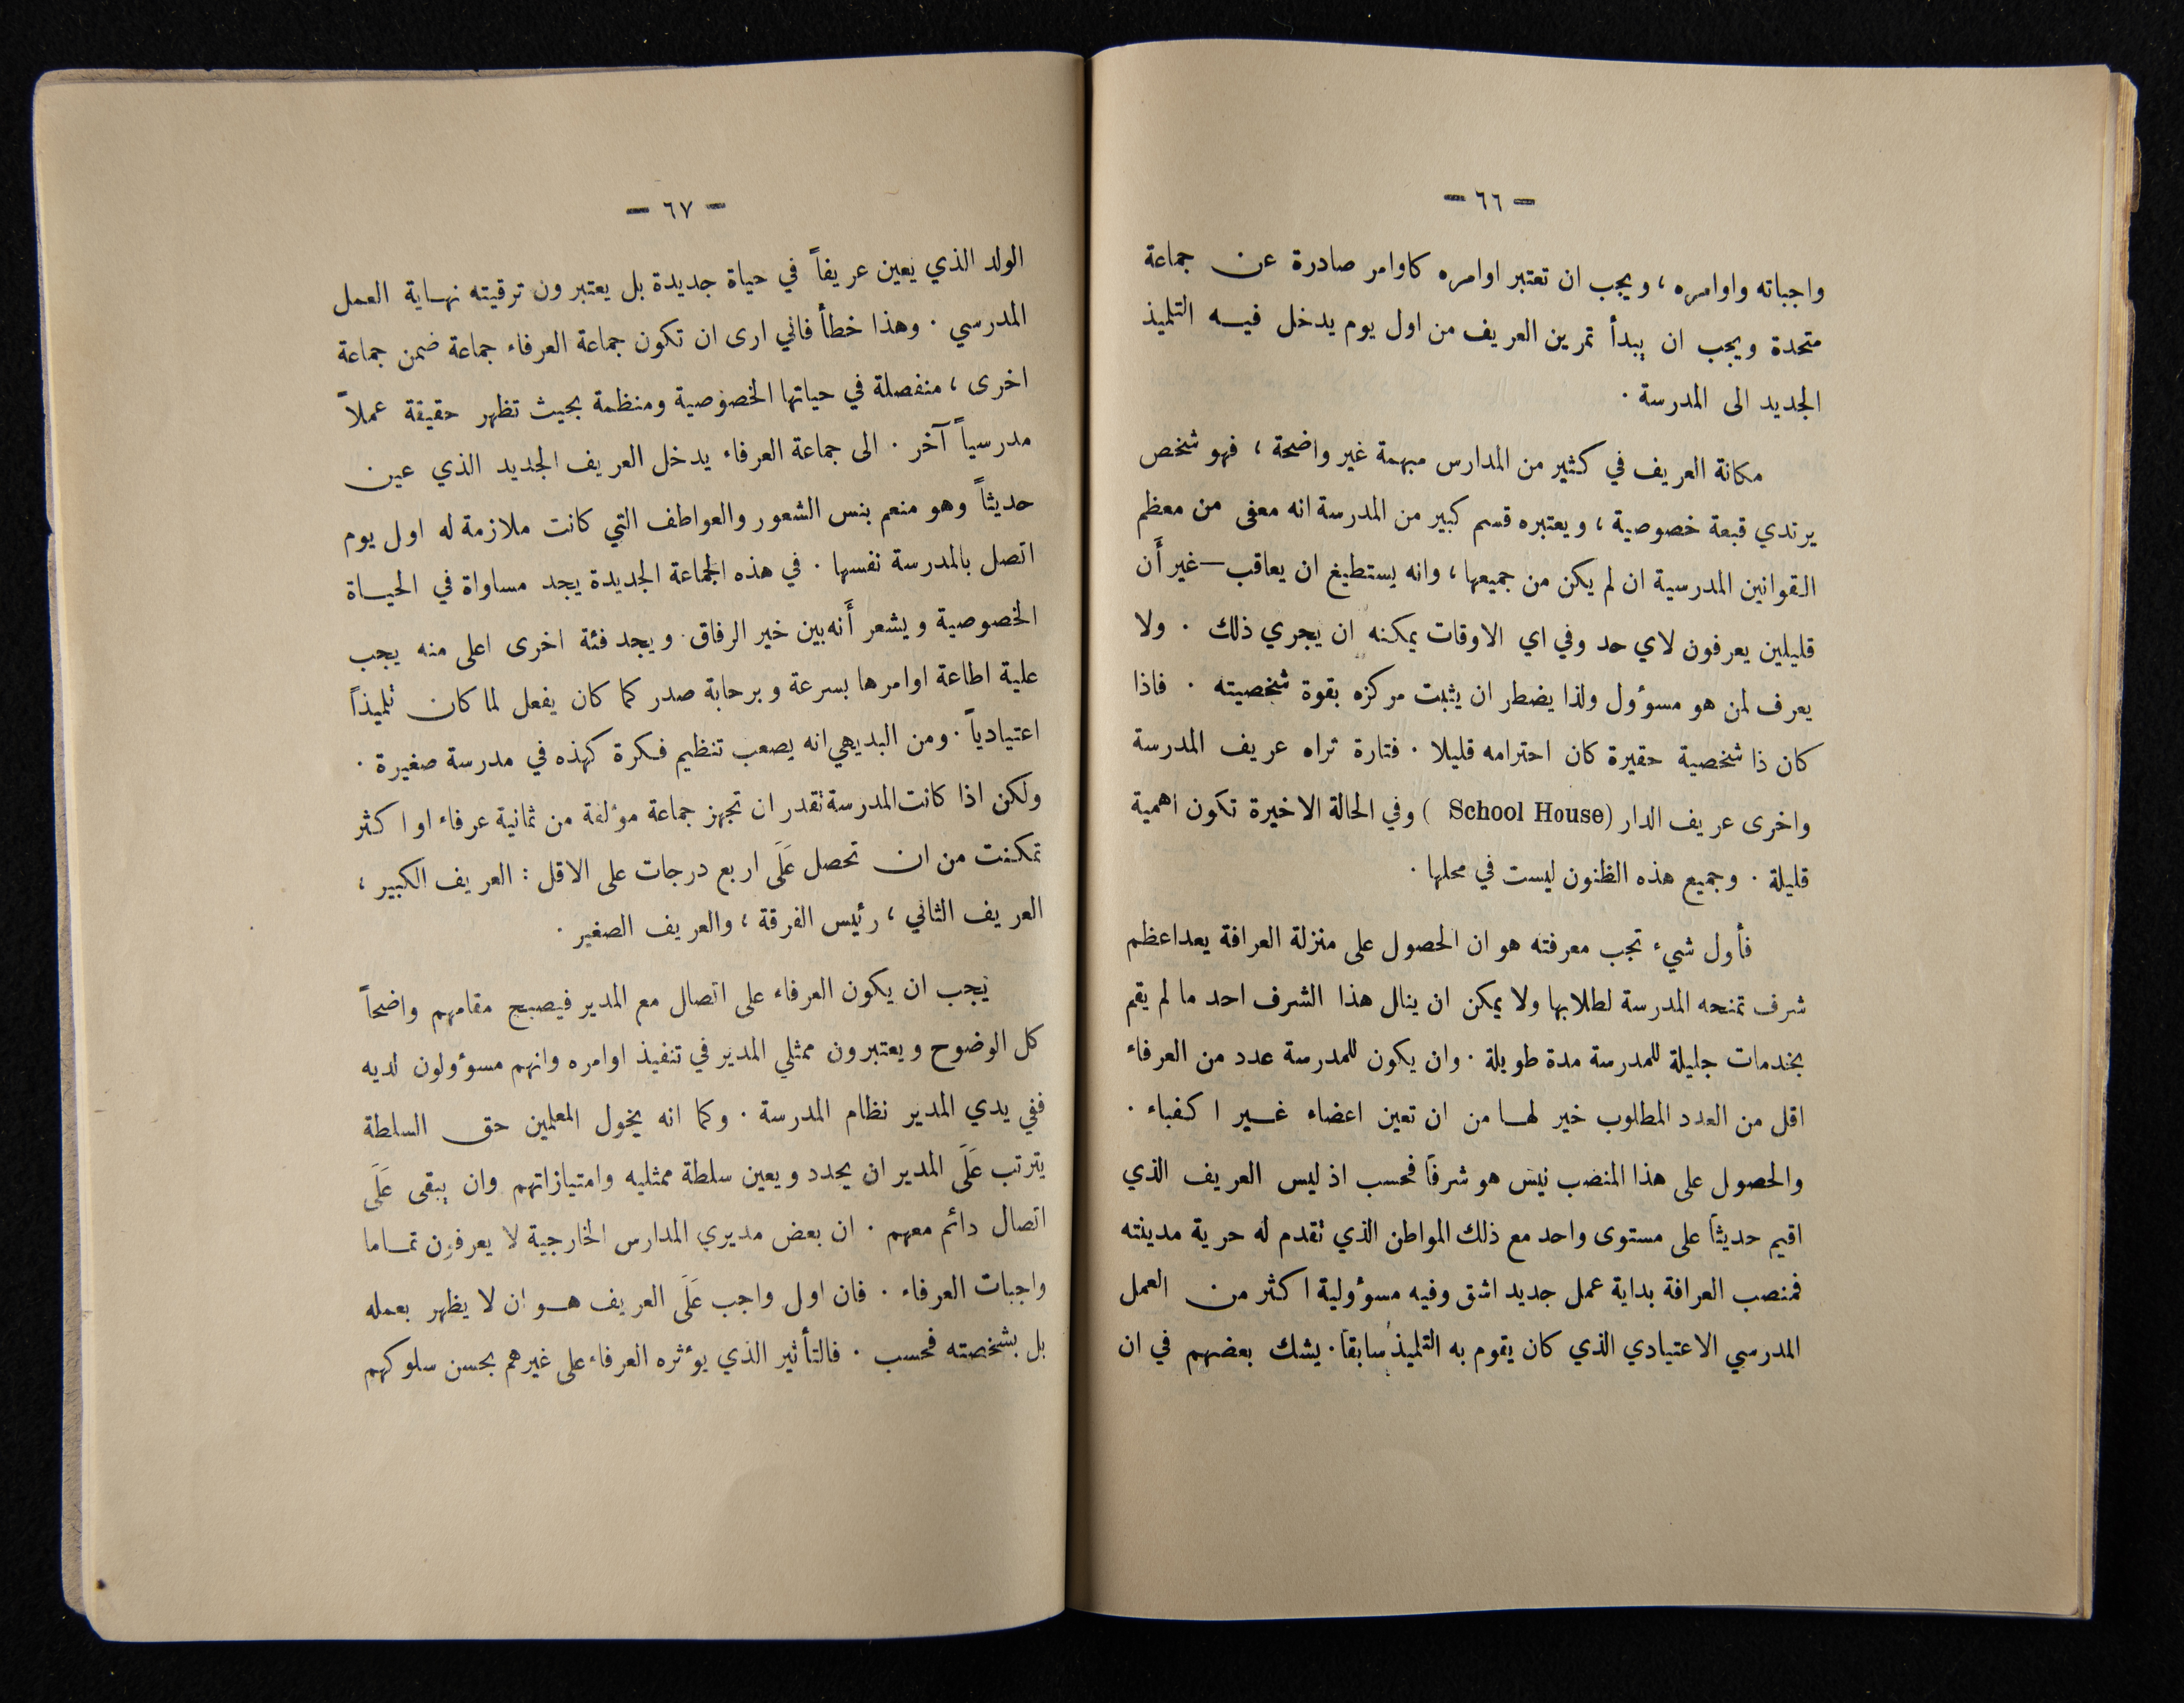 — ٦٦ —
واجباته واوامره ، ويجب ان تعتبر اوامره كاوامر صادرة عن جماعة
متحدة ويجب ان يبدأ تمرين العريف من اول يوم يدخل فيه التلميذ
الجديد الى المدرسة .
مكانة العريف في كثير من المدارس مبهمة غير واضحة ، فهو شخص
يرتدي قبعة خصوصية ، ويعتبره قسم كبير من المدرسة انه معفى من معظم
القوانين المدرسية ان لم يكن من جميعها ، وانه يستطيع ان يعاقب — غير أَن
قليلين يعرفون لاي حد وفي اي الاوقات يمكنه ان يجري ذلك . ولا
يعرف لمن هو مسؤول ولذا يضطر ان يثبت مركزه بقوة شخصيته . فاذا
كان ذا شخصية حقيرة كان احترامه قليلا . فتارة تراه عريف المدرسة
واخرى عريف الدار (School House) وفي الحالة الاخيرة تكون اهمية
قليلة . وجميع هذه الظنون ليست في محلها .
فأول شيء تجب معرفته هو ان الحصول على منزلة العرافة يعد اعظم
شرف تمنحه المدرسة لطلابها ولا يمكن ان ينال هذا الشرف احد ما لم يقم
بخدمات جليلة للمدرسة مدة طويلة . وان يكون للمدرسة عدد من العرفاء
اقل من العدد المطلوب خير لها من ان تعين اعضاء غير اكفباء .
والحصول على هذا المنصب نيس هو شرفاً فحسب اذ ليس العريف الذي
اقيم حديثاً على مستوى واحد مع ذلك المواطن الذي تقدم له حرية مدينته
فمنصب العرافة بداية عمل جديد اشق وفيه مسؤولية اكثر من العمل
المدرسي الاعتيادي الذي كان يقوم به التلميذ سابقاً . يشك بعضهم في ان
— ٦٧ —
الولد الذي يعين عريفاً في حياة جديدة بل يعتبرون ترقيته نهاية العمل
المدرسي . وهذا خطأ فاني ارى ان تكون جماعة العرفاء جماعة ضمن جماعة
اخرى ، منفصلة في حياتها الخصوصية ومنظمة بحيث تظهر حقيقة عملاً
مدرسياً آخر . الى جماعة العرفاء يدخل العريف الجديد الذي عين
حديثاً وهو منعم بنس الشعور والعواطف التي كانت ملازمة له اول يوم
اتصل بالمدرسة نفسها . في هذه الجماعة الجديدة يجد مساواة في الحياة
الخصوصية ويشعر أَنه بين خير الرفاق . ويجد فئة اخرى اعلى منه يجب
علية اطاعة اوامرها بسرعة وبرحابة صدر كما كان يفعل لما كان تلميذاً
اعتيادياً . ومن البديهي انه يصعب تنظيم فكرة كهذه في مدرسة صغيرة .
ولكن اذا كانت المدرسة تقدر ان تجهز جماعة مؤلفة من ثمانية عرفاء او اكثر
تمكنت من ان تحصل عَلَى اربع درجات على الاقل : العريف الكبير ،
العريف الثاني ، رئيس الفرقة ، والعريف الصغير .
يجب ان يكون العرفاء على اتصال مع المدير فيصبح مقامهم واضحاً
كل الوضوح ويعتبرون ممثلي المدير في تنفيذ اوامره وانهم مسؤولون لديه
ففي يدي المدير نظام المدرسة . وكما انه يخول المعلمين حق السلطة
يترتب عَلَى المدير ان يحدد ويعين سلطة ممثليه وامتيازاتهم وان يبقى عَلَى
اتصال دائم معهم . ان بعض مديري المدارس الخارجية لا يعرفون تماما
واجبات العرفاء . فان اول واجب عَلَى العريف هو ان لا يظهر بعمله
بل بشخصته فحسب . فالتأثير الذي يؤثره العرفاء على غيرهم بحسن سلوكهم